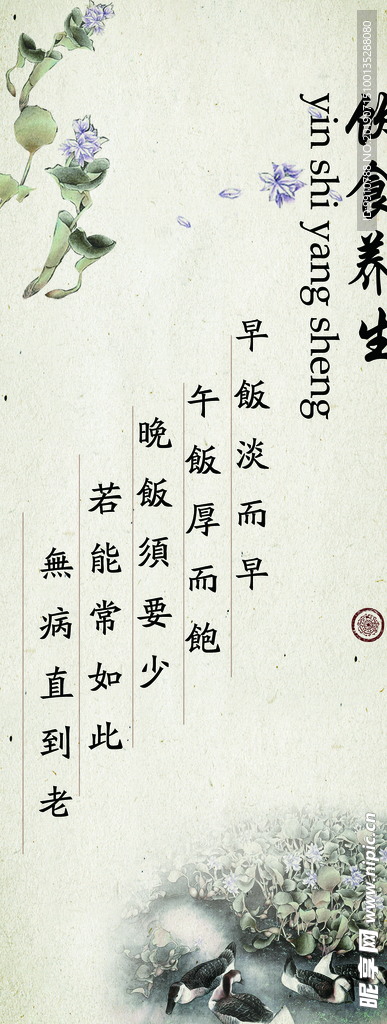 飲食养生
yin shi yang sheng
早飯淡而早
午飯厚而飽
晚飯須要少
若能常如此
無病直到老
昵享网 www.nipic.cn